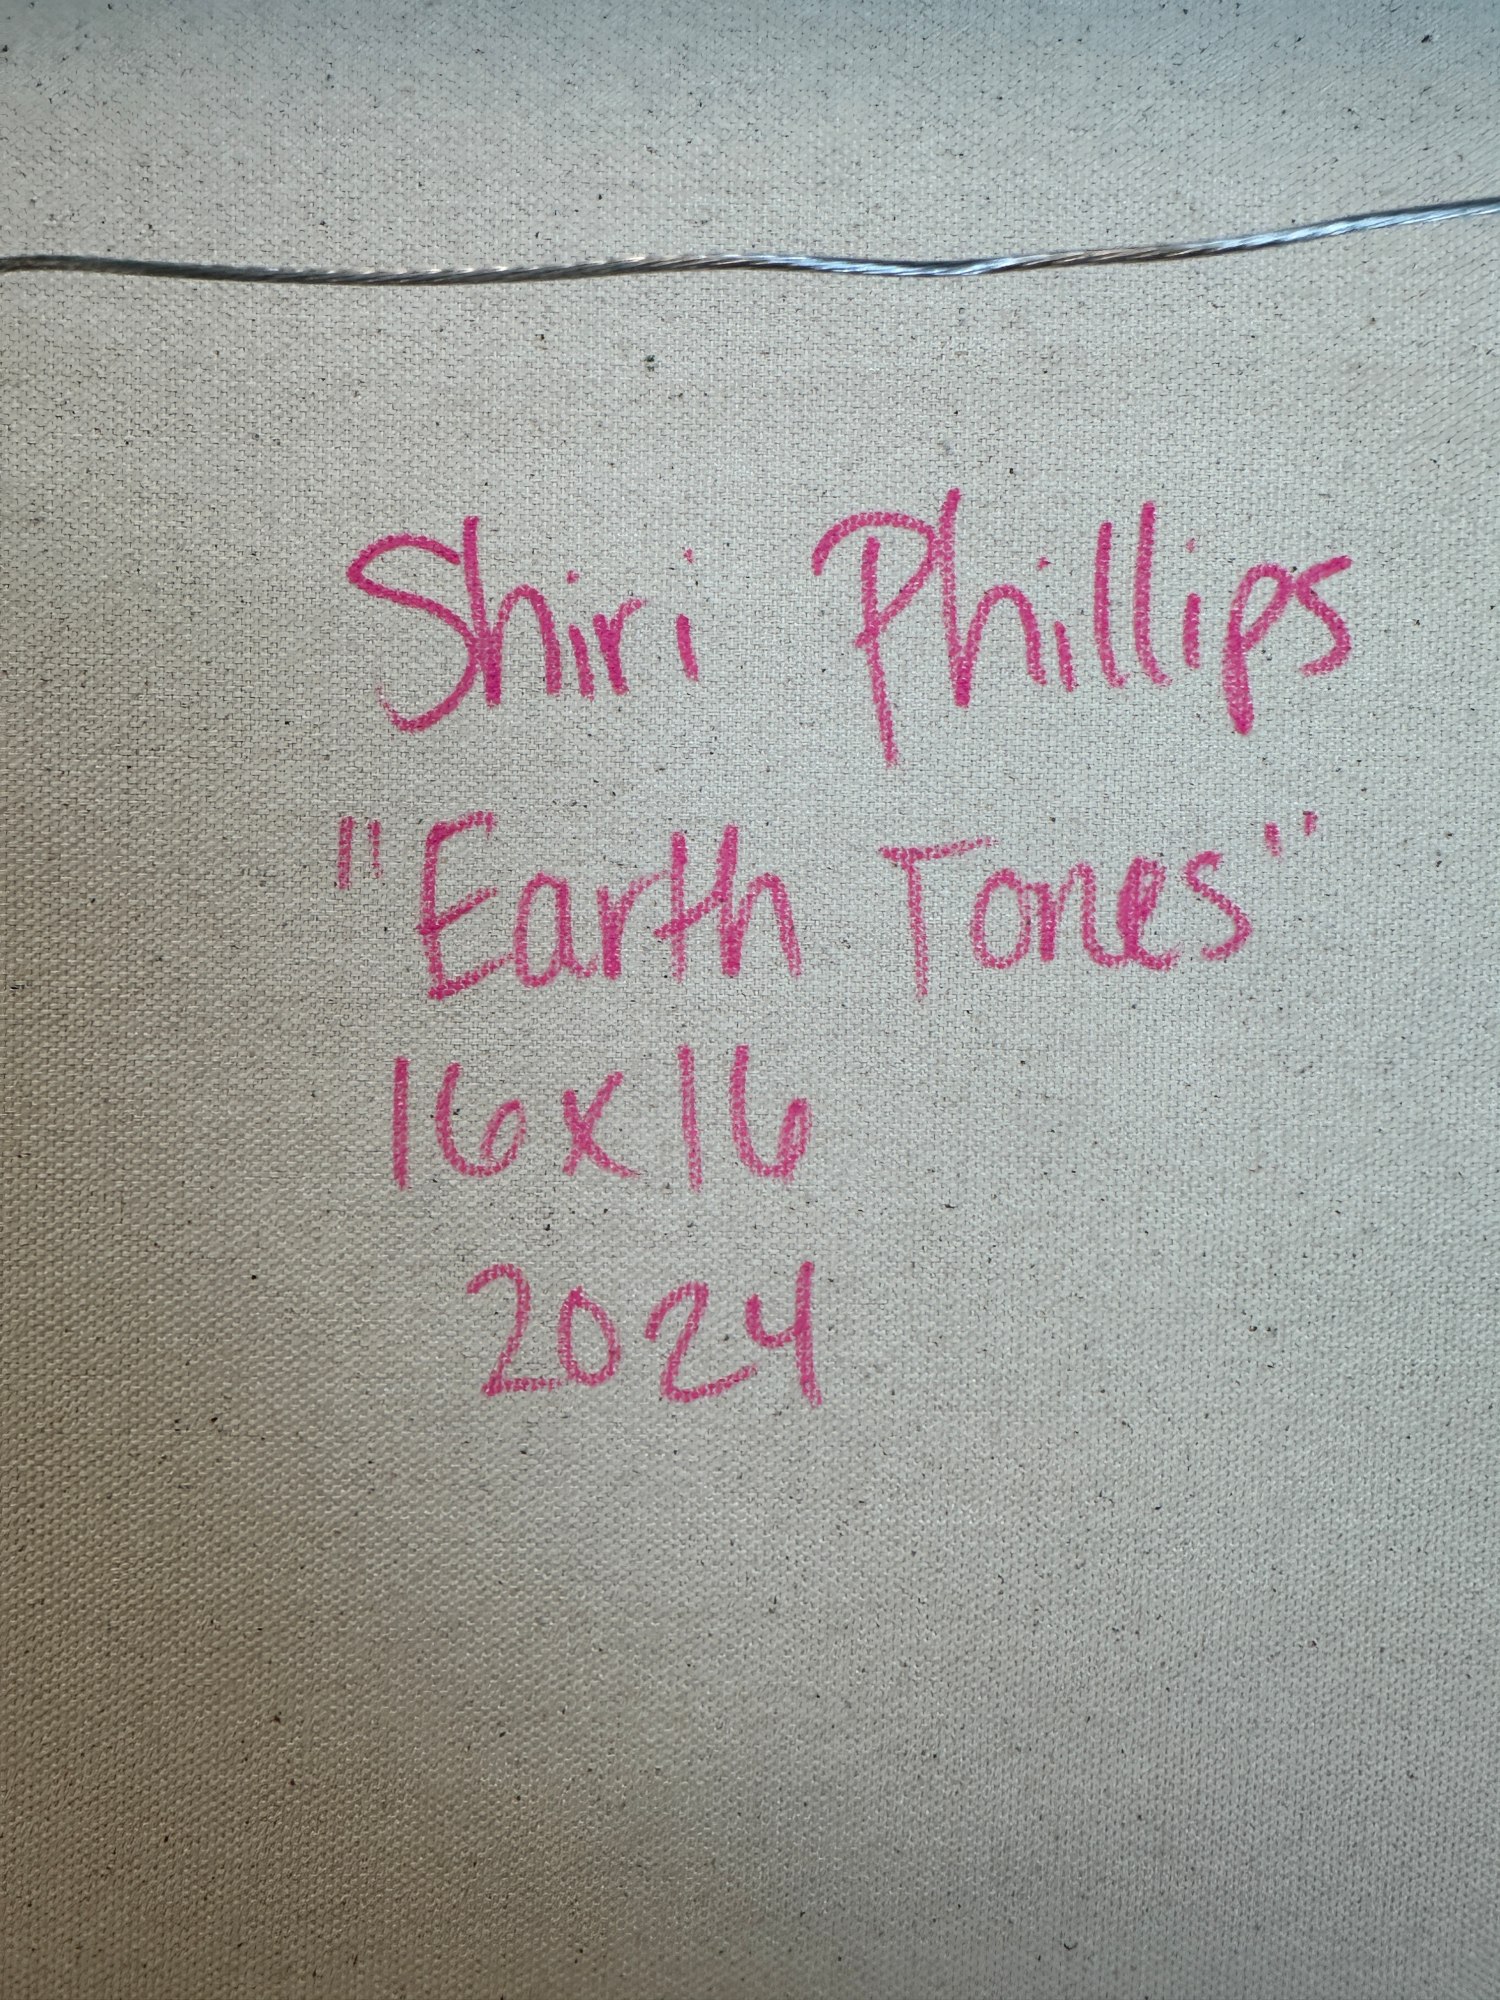 Shiri Phillips
"Earth Tones"
16x16
2024